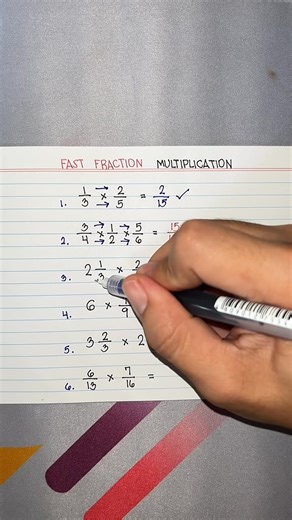 FAST FRACTION MULTIPLICATION
1. 1/3 × 2/5 = 2/15 ✓
2. 3/4 × 1/2 × 5/6 = 15
3. 2 1/3 × 2
4. 6 × /9
5. 3 2/3 × 2
6. 6/13 × 7/16 =